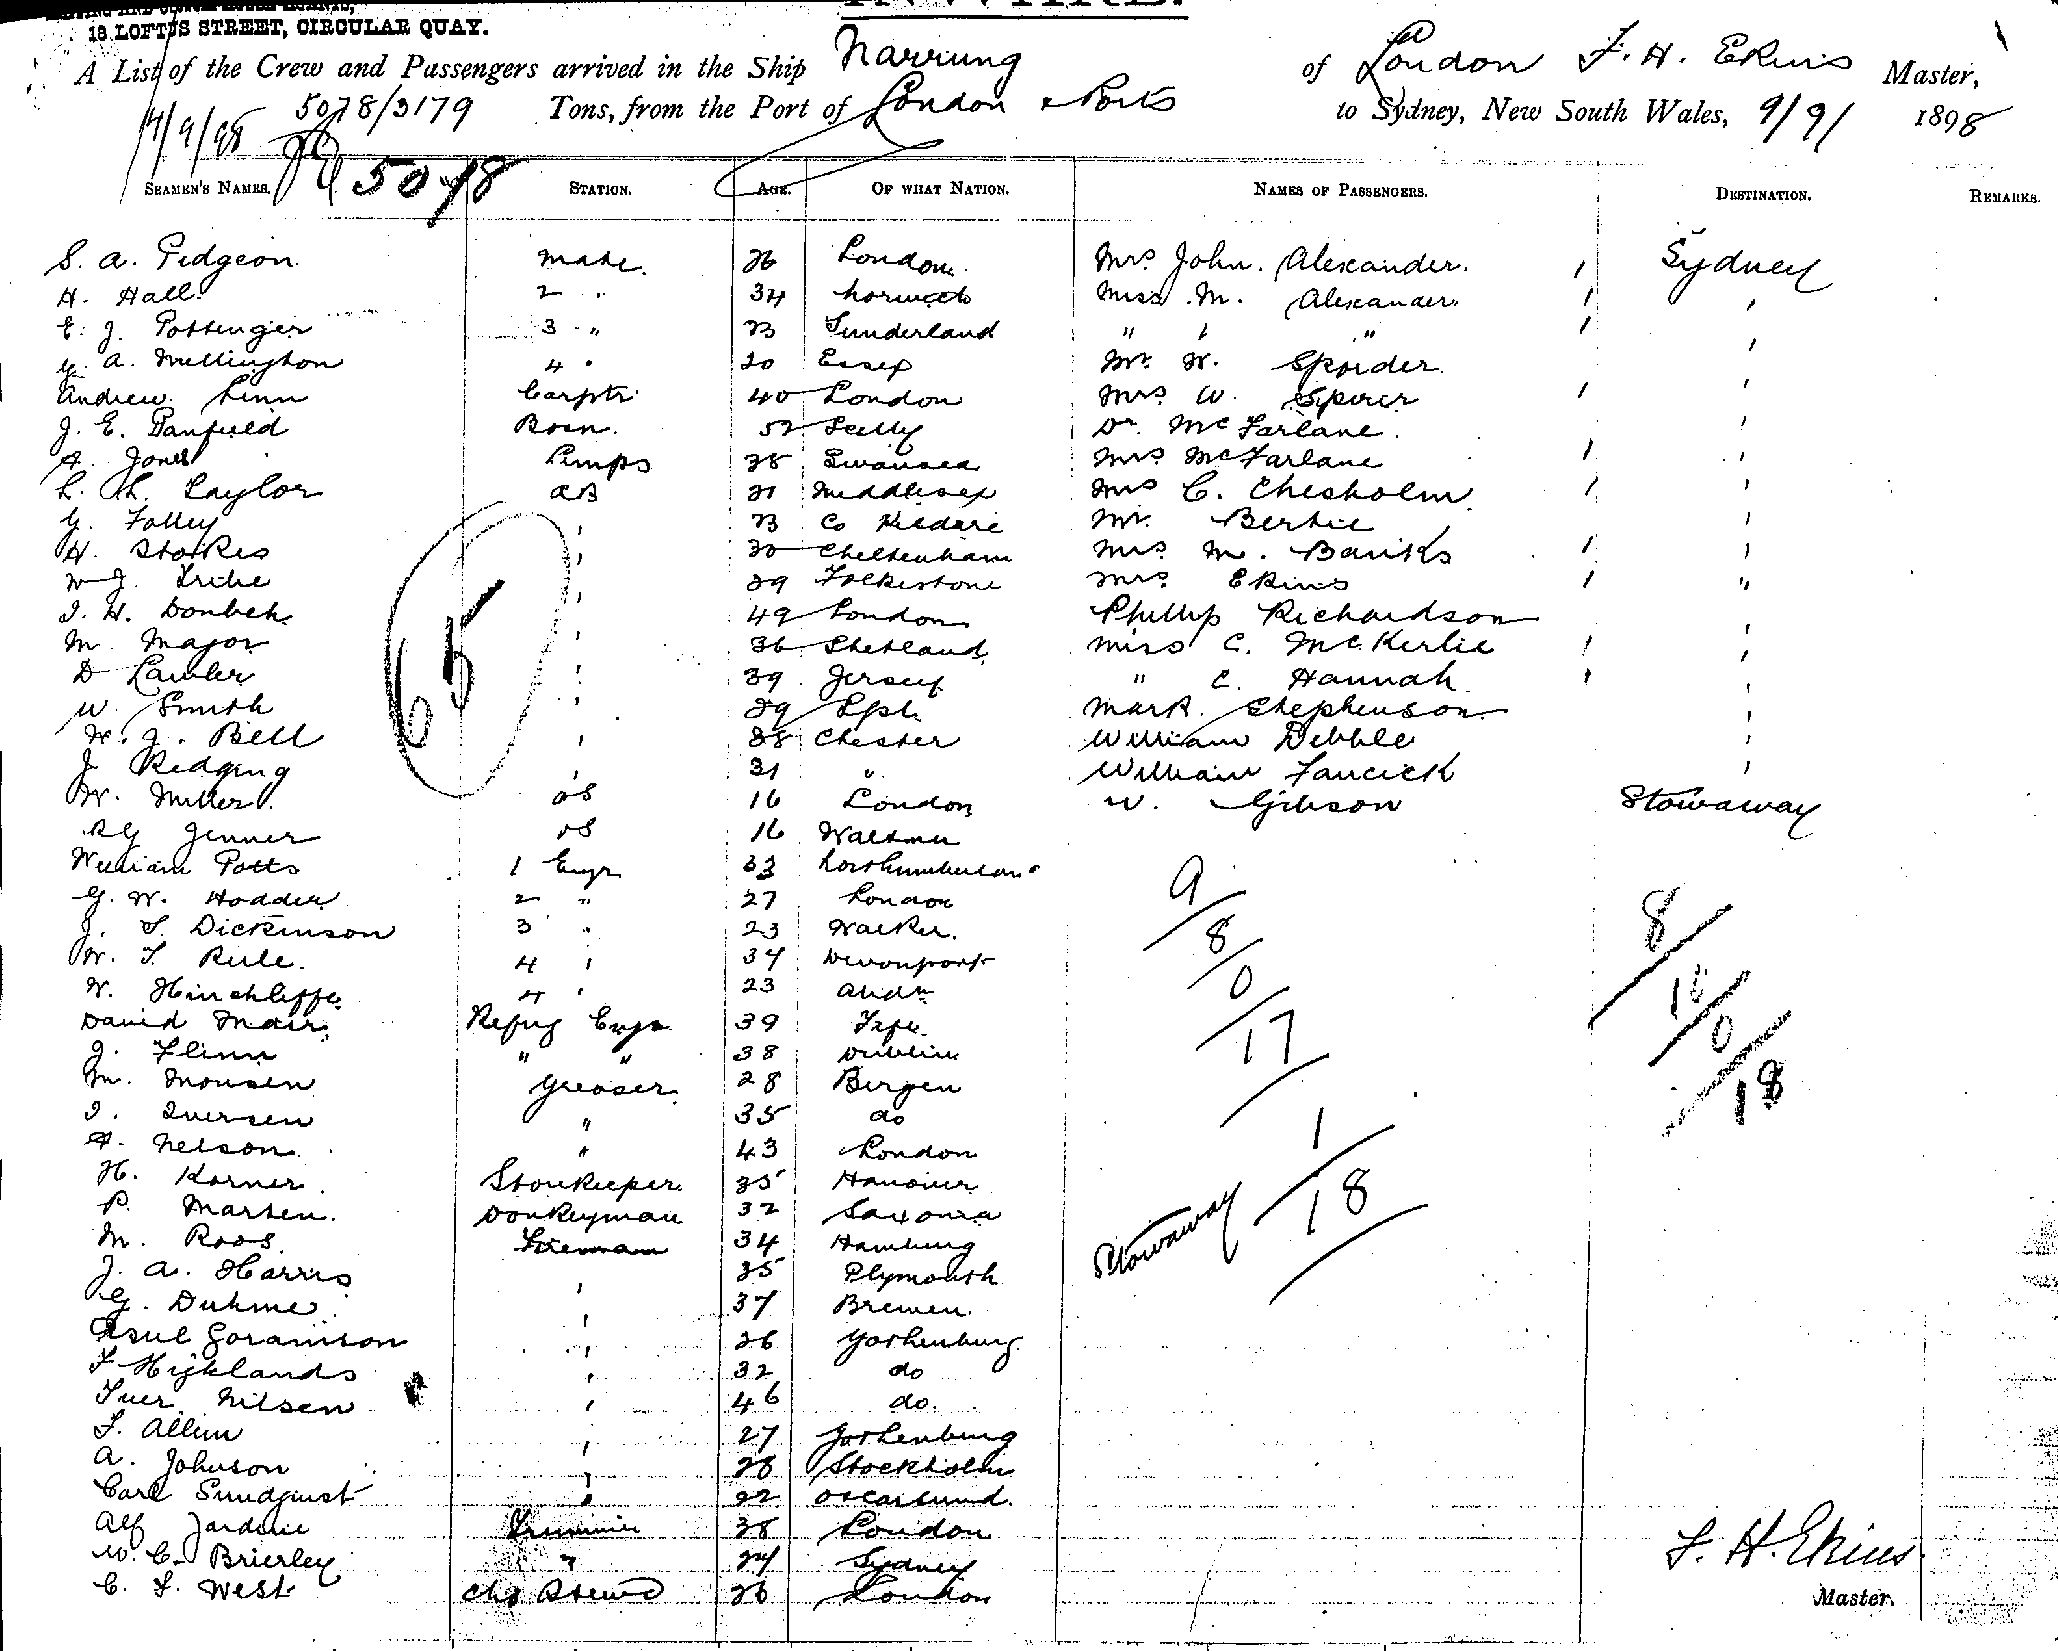 18 LOFTUS STREET, CIRCULAR QUAY.
A List of the Crew and Passengers arrived in the Ship Narrung of London F. H. Ekins Master,
5078/3179 Tons, from the Port of London & Ports to Sydney, New South Wales, 9/9/ 1898
5078
SEAMEN'S NAMES. STATION. AGE. OF WHAT NATION. NAMES OF PASSENGERS. DESTINATION. REMARKS.
S. A. Pidgeon mate. 26 London. Mrs. John. Alexander. Sydney
H. Hall. 2 " 34 Norwich Miss. M. Alexander.
E. J. Pottenger 3 " 23 Sunderland " " "
A. Millington 4 " 20 Essex Mr. W.
Andrew. Linn Carptr. 40 London Mrs. W.
J. E. Banfield Bosn. 52 Scilly Dr. McFarlane.
A. Jones Lamps 28 Swansea Mrs McFarlane
L. Taylor AB 21 Middlesex Mrs C. Chesholm
G. Folley 23 Co Kildare Mr. Bertie
H. Stokes 30 Cheltenham Mrs. M. Banks
W J. Tribe 29 Folkestone Mrs. Ekins "
J. H. 49 London Phillip Richardson
M. Major 36 Shetland Miss C. McKerlie
D Lawler 39 Jersey " C. Hannah
W. Smith 29 Lpl. Mark. Stephenson
J. Bell 28 Chester William Debble
J. Redging 31 " William
W. Miller. OS 16 London W. Gibson Stowaway
Jenner OS 16
William Potts 1 Engr 33 Northumberland
G. W. Hodder 2 " 27 London
J. S. Dickinson 3 " 23 Walker.
W. T. Rule. 4 34 Devonport
W. Hinchliffe 4 23
David Mair. Refrig Engr 39 Fife.
J. Flinn " " 38 Dublin
M. Monsen Greaser 28 Bergen
I. Iversen " 35 do
A. Nelson. " 43 London
H. Korner. Storekeeper 35 Hanover
P. Marten. Donkeyman 32 Saxonia
M. Roos Fireman 34 Hamburg
J. A. Harris 35 Plymouth
G. Duhme. 37 Bremen.
Goranson 26 Gothenburg.
F Highlands 32 do
Iver Nilsen 46 do.
F. Allun 27 Gothenburg
A. Johnson 28 Stockholm
Carl Sundquist 22
Alf Jardine Trimmer 38 London
W. C. Brierley " 24 Sydney
C. F. West Chf Steward 26 London
65
9/8/0/17
8/10/0/18
Stowaway 1/18
F. H. Ekins
Master.